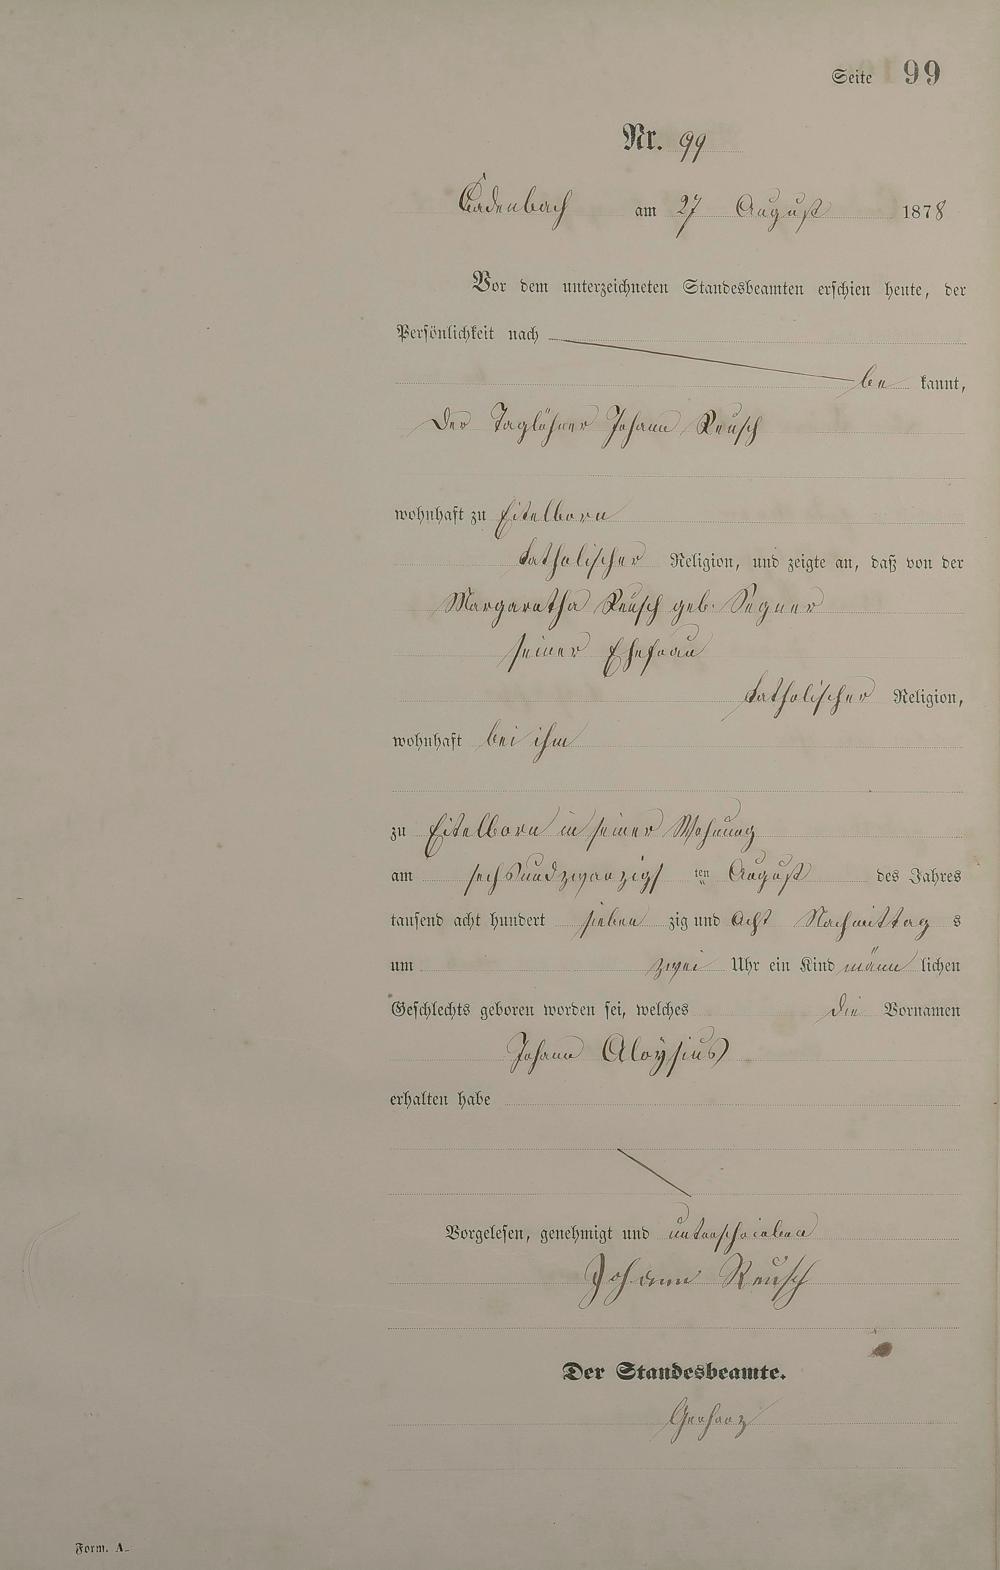 Seite 99
Nr. 99
Kadenbach am 27 August 1878
Vor dem unterzeichneten Standesbeamten erschien heute, der
Persönlichkeit nach
be kannt,
der Taglöhner Johann Reusch
wohnhaft zu Eitelborn
katholischer Religion, und zeigte an, daß von der
Margaretha Reusch geb. Segner
seiner Ehefrau
katholischer Religion,
wohnhaft bei ihm
zu Eitelborn in seiner Wohnung
am sechsundzwanzigs ten August des Jahres
tausend acht hundert sieben zig und acht Nachmittag s
um zwei Uhr ein Kind männ lichen
Geschlechts geboren worden sei, welches die Vornamen
Johann Aloÿsius
erhalten habe
Vorgelesen, genehmigt und unterschrieben
Johann Reusch
Der Standesbeamte.
Gerharz
Form. A.